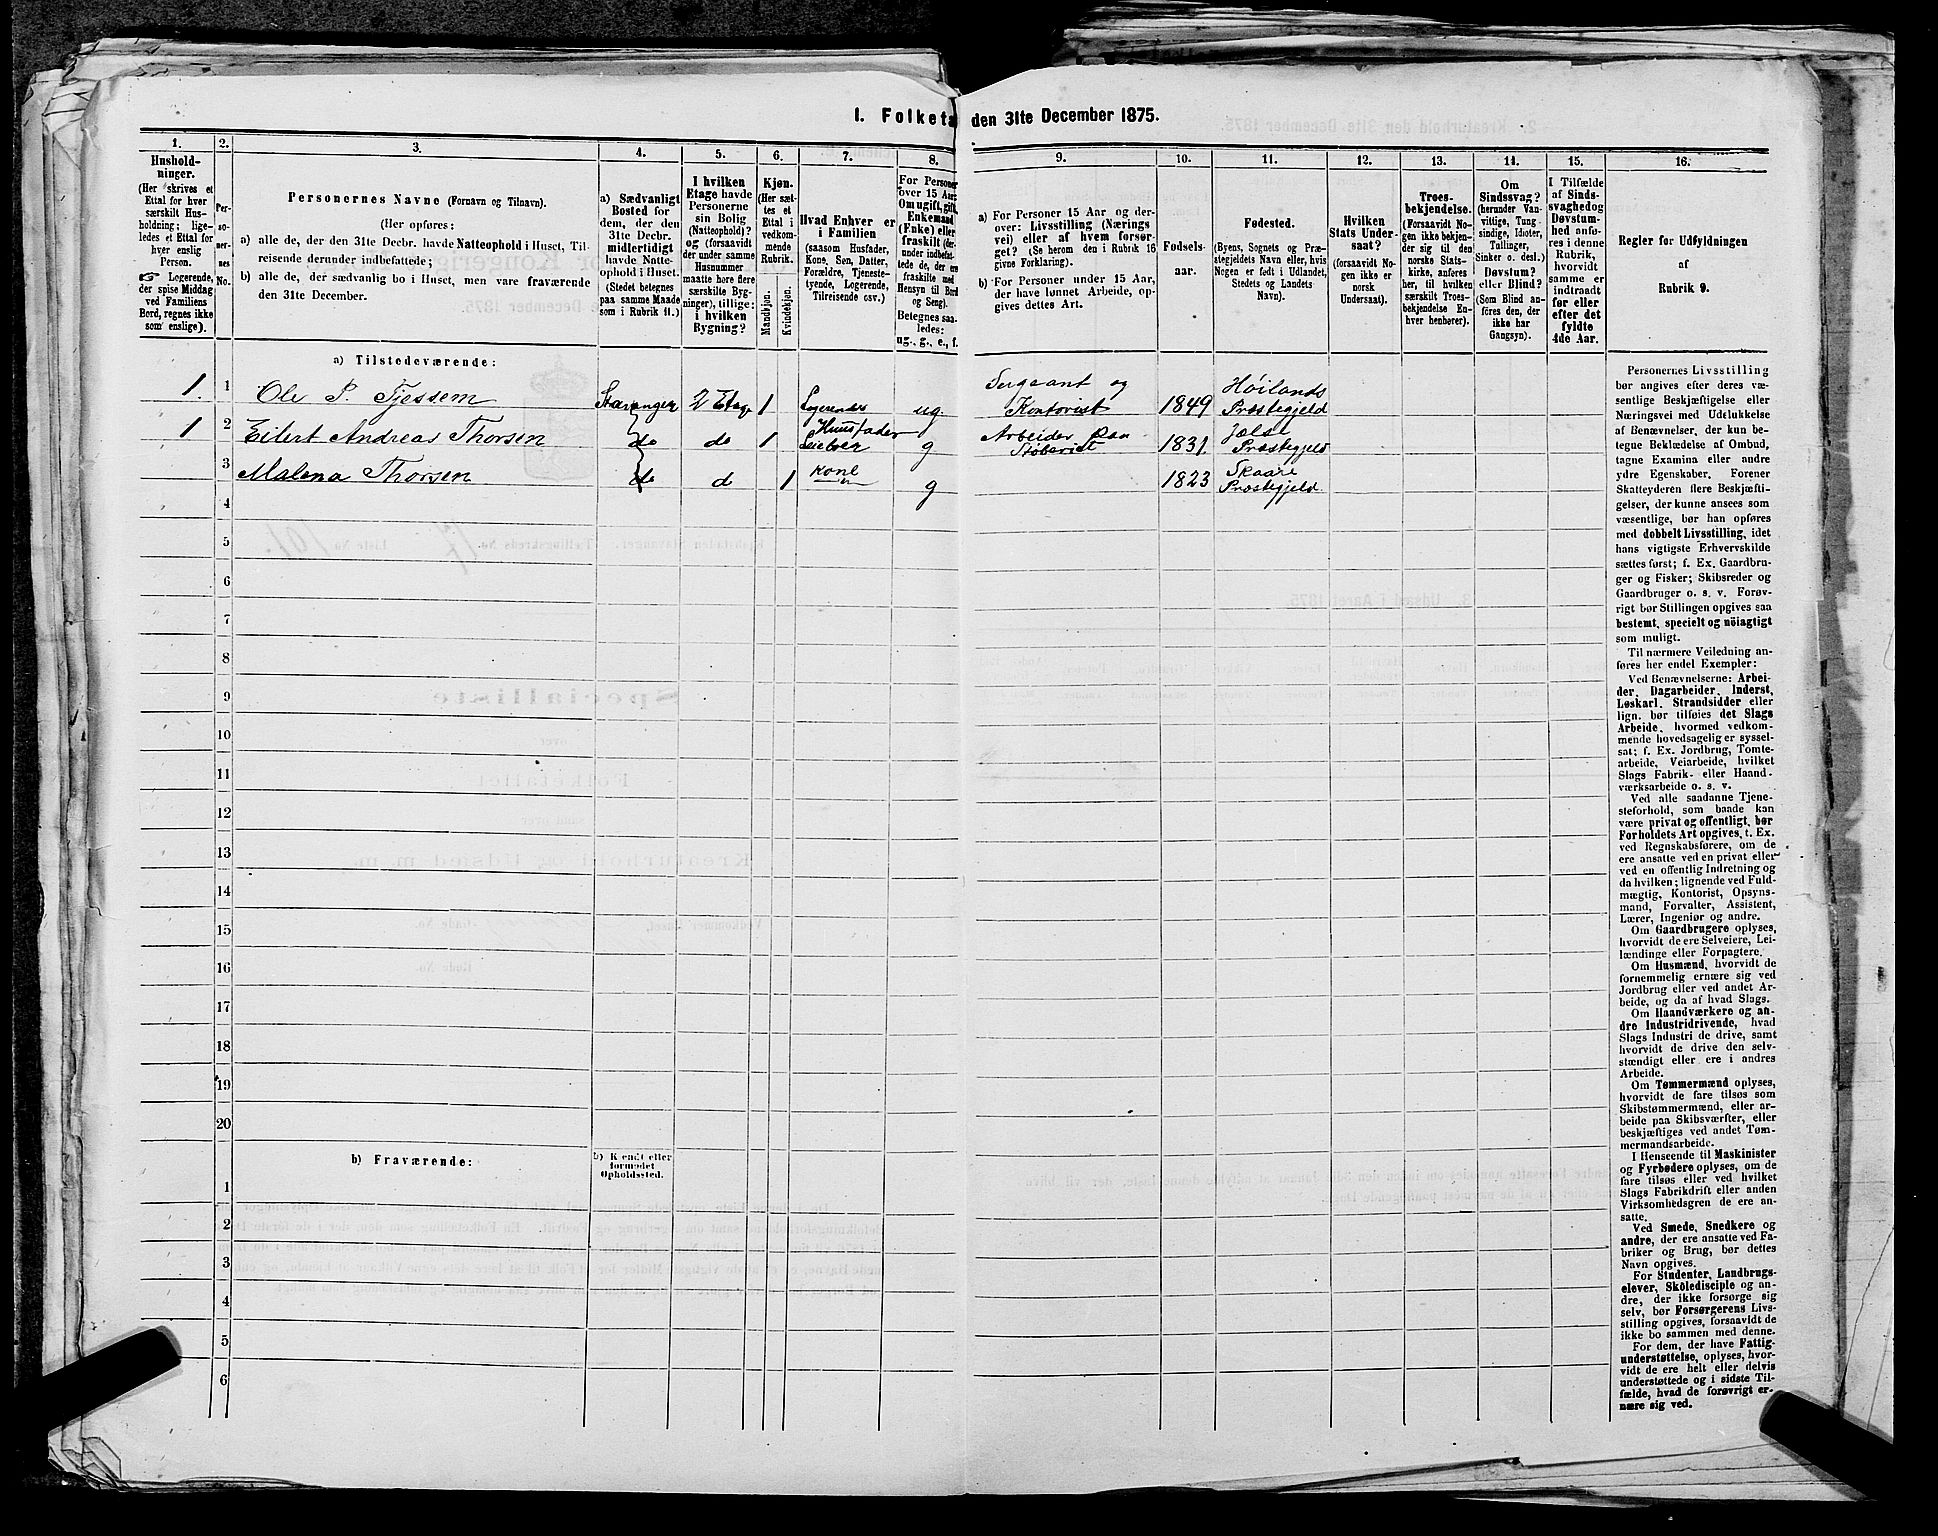 1. Folketal den 31te December 1875.
1.
2.
3.
4.
5.
6.
7.
8.
9.
10.
11.
12.
13.
14.
15.
16.
Hushold-
ninger.
(Her skrives et
Ettal for hver
særskilt Hus-
holdning; lige-
ledes et Ettal for
hver enslig
Person.
☞ Logerende,
der spise Middag
ved Familiens
Bord, regnes ikke
som enslige).
Per-
so-
ner-
nes
No.
Personernes Navne (Fornavn og Tilnavn).
(Her opføres:
a) alle de, der den 31te Decbr. havde Natteophold i Huset, Til-
reisende derunder indbefattede;
b) alle de, der sædvanlig bo i Huset, men vare fraværende
den 31te December.
a) Sædvanligt
Bosted for
dem, der den
31te Decbr.
midlertidigt
havde Natte-
ophold i Huset.
(Stedet betegnes
paa samme Maade
som i Rubrik 11.)
I hvilken
Etage havde
Personerne
sin Bolig
(Natteophold)?
og (forsaavidt
der under samme
Husnummer
maatte høre flere
særskilte Byg-
ninger), tillige:
i hvilken
Bygning?
Kjøn.
(Her sæt-
tes et
Ettal i
vedkom-
mende
Rubrik.
Mandkjøn.
Kvindekjøn.
Hvad Enhver er
i Familien
(saasom Husfader,
Kone, Søn, Datter,
Forældre, Tjeneste-
tyende, Logerende,
Tilreisende osv.)
For Personer
over 15 Aar:
Om ugift, gift,
Enkemand
(Enke) eller
fraskilt (der-
under indbefat-
tede de, der ere
fraskilte med
Hensyn til Bord
og Seng).
Betegnes saa-
ledes:
ug., g., e., f.
a) For Personer 15 Aar og der-
over: Livsstilling (Nærings-
vei) eller af hvem forsør-
get? (Se herom den i Rubrik 16
givne Forklaring).
b) For Personer under 15 Aar,
der have lønnet Arbeide, op-
gives dettes Art.
Fødsels-
aar.
Fødested.
(Byens, Sognets og Præ-
stegjeldets Navn eller, hvis
Nogen er født i Udlandet,
Stedets og Landets
Navn).
Hvilken
Stats Under-
saat?
(forsaavidt No-
gen ikke er
norsk
Undersaat).
Troes-
bekjendelse.
(Forsaavidt No-
gen ikke bekjen-
der sig til den
norske Stats-
kirke, anføres
her, til hvilken
særskilt Troes-
bekjendelse En-
hver henhører).
Om
Sindssvag?
(herunder Van-
vittige, Tung-
sindige, Idioter,
Tullinger,
Sinker o. desl.)
Døvstum?
eller Blind?
(Som Blind an-
føres den, der
ikke har
Gangsyn).
I Tilfælde
af Sinds-
svaghed og
Døvstum-
hed anfø-
res i denne
Rubrik,
hvorvidt
samme er
indtraadt
før eller
efter det
fyldte
4de Aar.
Regler for Udfyldningen
af
Rubrik 9.
a) Tilstedeværende:
1. 1 Ole P. Tjessem Stavanger 2 Etage 1 Logerende ug. Sergeant og Kontorist 1849 Høilands Præstegjeld
1 2 Eilert Andreas Thorsen do do 1 Huusfader Leieboer g Arbeider paa 1831. Jælse Præstegjeld
3 Malena Thorsen do d 1 Kone g 1823 Skaare Præstegjeld.
4
5
6
7
8
9
10
11
12
13
14
15
16
17
18
19
20
b) Fraværende:
b) Kjendt eller
formodet
Opholdssted.
1
2
3
4
5
6
Personernes Livsstilling
bør angives efter deres væ-
sentlige Beskjæftigelse eller
Næringsvei med Udelukkelse
af Benævnelser, der kun be-
tegne Beklædelse af Ombud,
tagne Examina eller andre
ydre Egenskaber. Forener
Skatteyderen flere Beskjæfti-
gelser, der kunne ansees som
væsentlige, bør han opføres
med dobbelt Livsstilling, idet
hans vigtigste Erhvervskilde
sættes først; f. Ex. Gaardbru-
ger og Fisker; Skibsreder og
Gaardbruger o. s. v. Forøv-
rigt bør Stillingen opgives saa
bestemt, specielt og nöiagtigt
som muligt.
Til nærmere Veiledning an-
føres her endel Exempler:
Ved Benævnelserne: Arbei-
der, Dagarbeider, Inderst,
Løskarl, Strandsidder eller
lign. bør tilføies det Slags
Arbeide, hvormed vedkom-
mende hovedsagelig er syssel-
sat; f. Ex. Jordbrug, Tomte-
arbeide, Veiarbeide, hvilket
Slags Fabrik- eller Haand-
værksarbeide o. s. v.
Ved alle saadanne Tjene-
steforhold, som baade kan
være privat og offentligt, bør
Forholdets Art opgives, t. Ex.
ved Regnskabsførere, om de
ere ansatte ved en privat eller
ved en offentlig Indretning og
da hvilken; lignende ved Fuld-
mægtig, Kontorist, Opsyns-
mand, Forvalter, Assistent,
Lærer, Ingeniør og andre.
Om Gaardbrugere oplyses,
hvorvidt de ere Selveiere, Lei-
lændinge eller Forpagtere.
Om Husmænd, hvorvidt de
fornemmelig ernære sig ved
Jordbrug eller ved andet Ar-
beide, og da af hvad Slags.
Om Haandværkere og an-
dre Industridrivende, hvad
Slags Industri de drive, samt
hvorvidt de drive den selv-
stændigt eller ere i andres
Arbeide.
Om Tømmermænd oplyses,
hvorvidt de fare tilsøs som
Skibstømmermænd, eller ar-
beide paa Skibsværfter, eller
beskjæftiges ved andet Tøm-
mermandsarbeide.
I Henseende til Maskinister
og Fyrbødere oplyses, om de
fare tilsøs eller ved hvilket
Slags Fabrikdrift eller anden
Virksomhedsgren de ere an-
satte.
Ved Smede, Snedkere og
andre, der ere ansatte ved Fa-
briker og Brug, bør dettes
Navn opgives.
For Studenter, Landbrugs-
elever, Skölediscipel og an-
dre, der ikke forsørge sig
selv, bør Forsørgerens Livs-
stilling opgives, forsaavidt de
ikke bo sammen med denne.
For dem, der have Fattig-
understøttelse, oplyses, hvor-
vidt de ere helt eller delvis
understøttede og i sidste Til-
fælde, hvad de forøvrigt er-
nære sig ved.